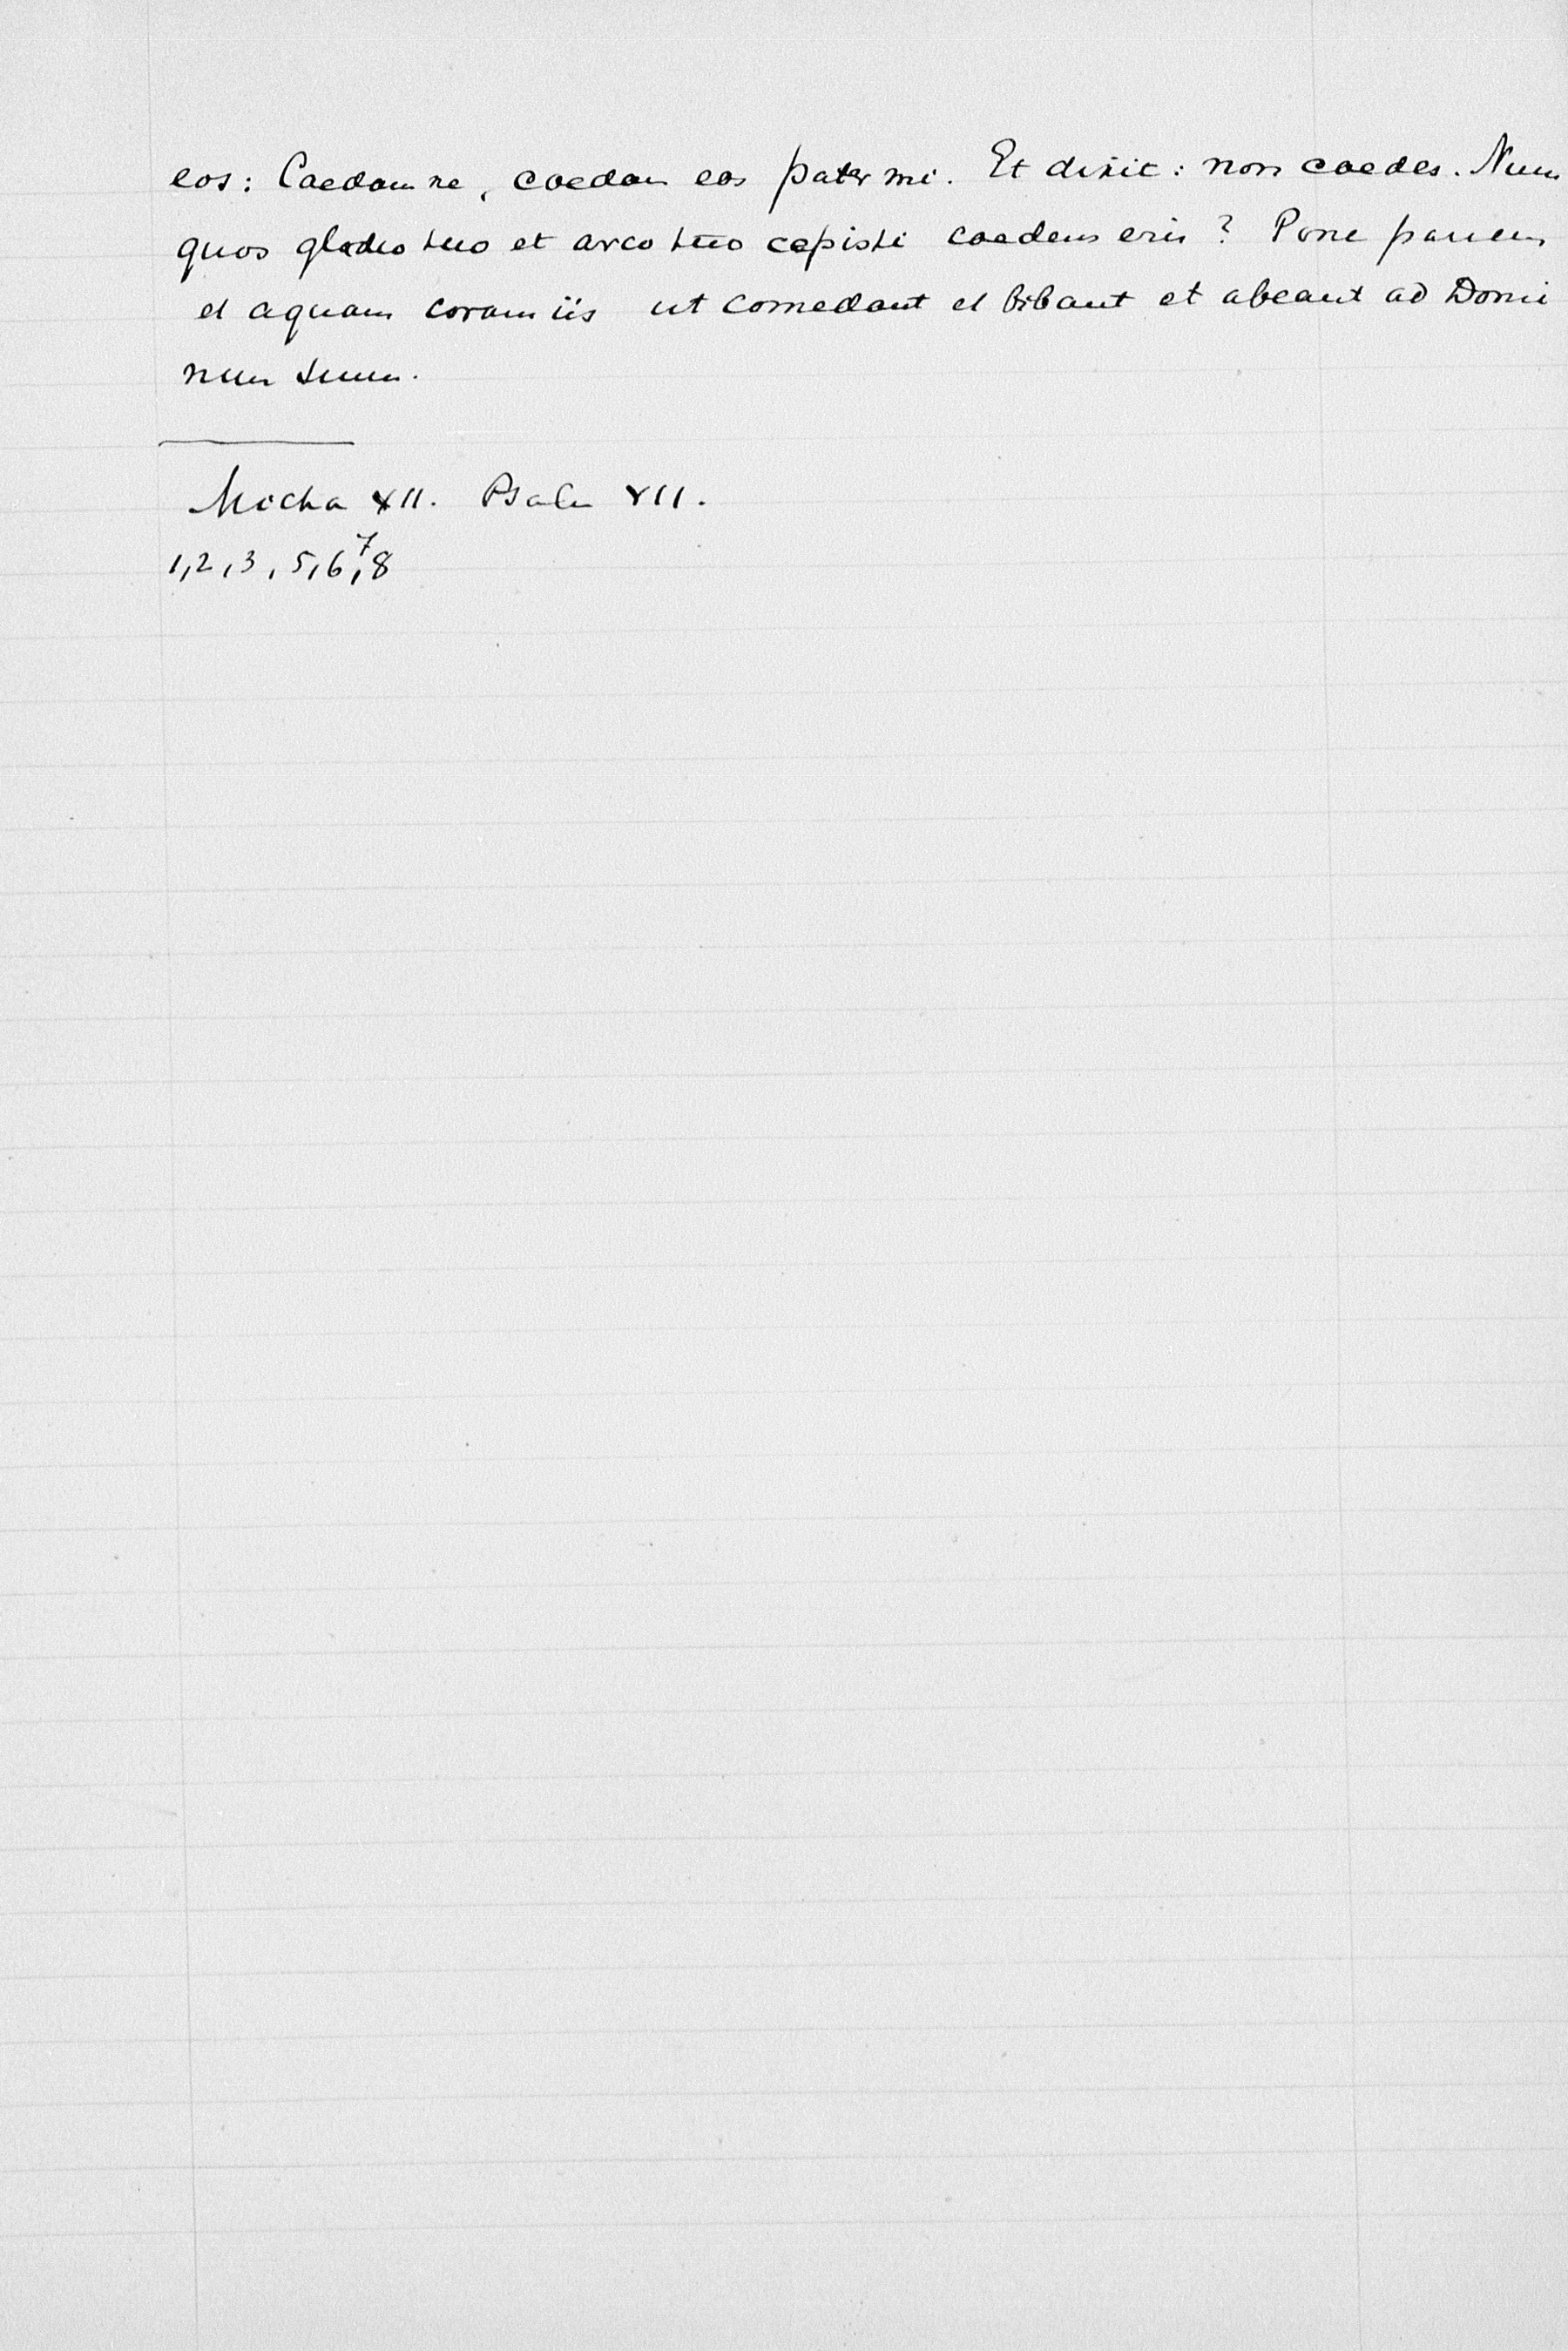 eos: Caedamne, caedam eos pater mi. Et dixit: non caedes. Num
quos gladio tuo et arco tuo cepisti caedens eris? Pone panem
et aquam coram iis ut comedant et bibant et abeant ad Domi
num suum.
Micha XII. Psalm XII.
1, 2, 3, 5, 6, 7, 8